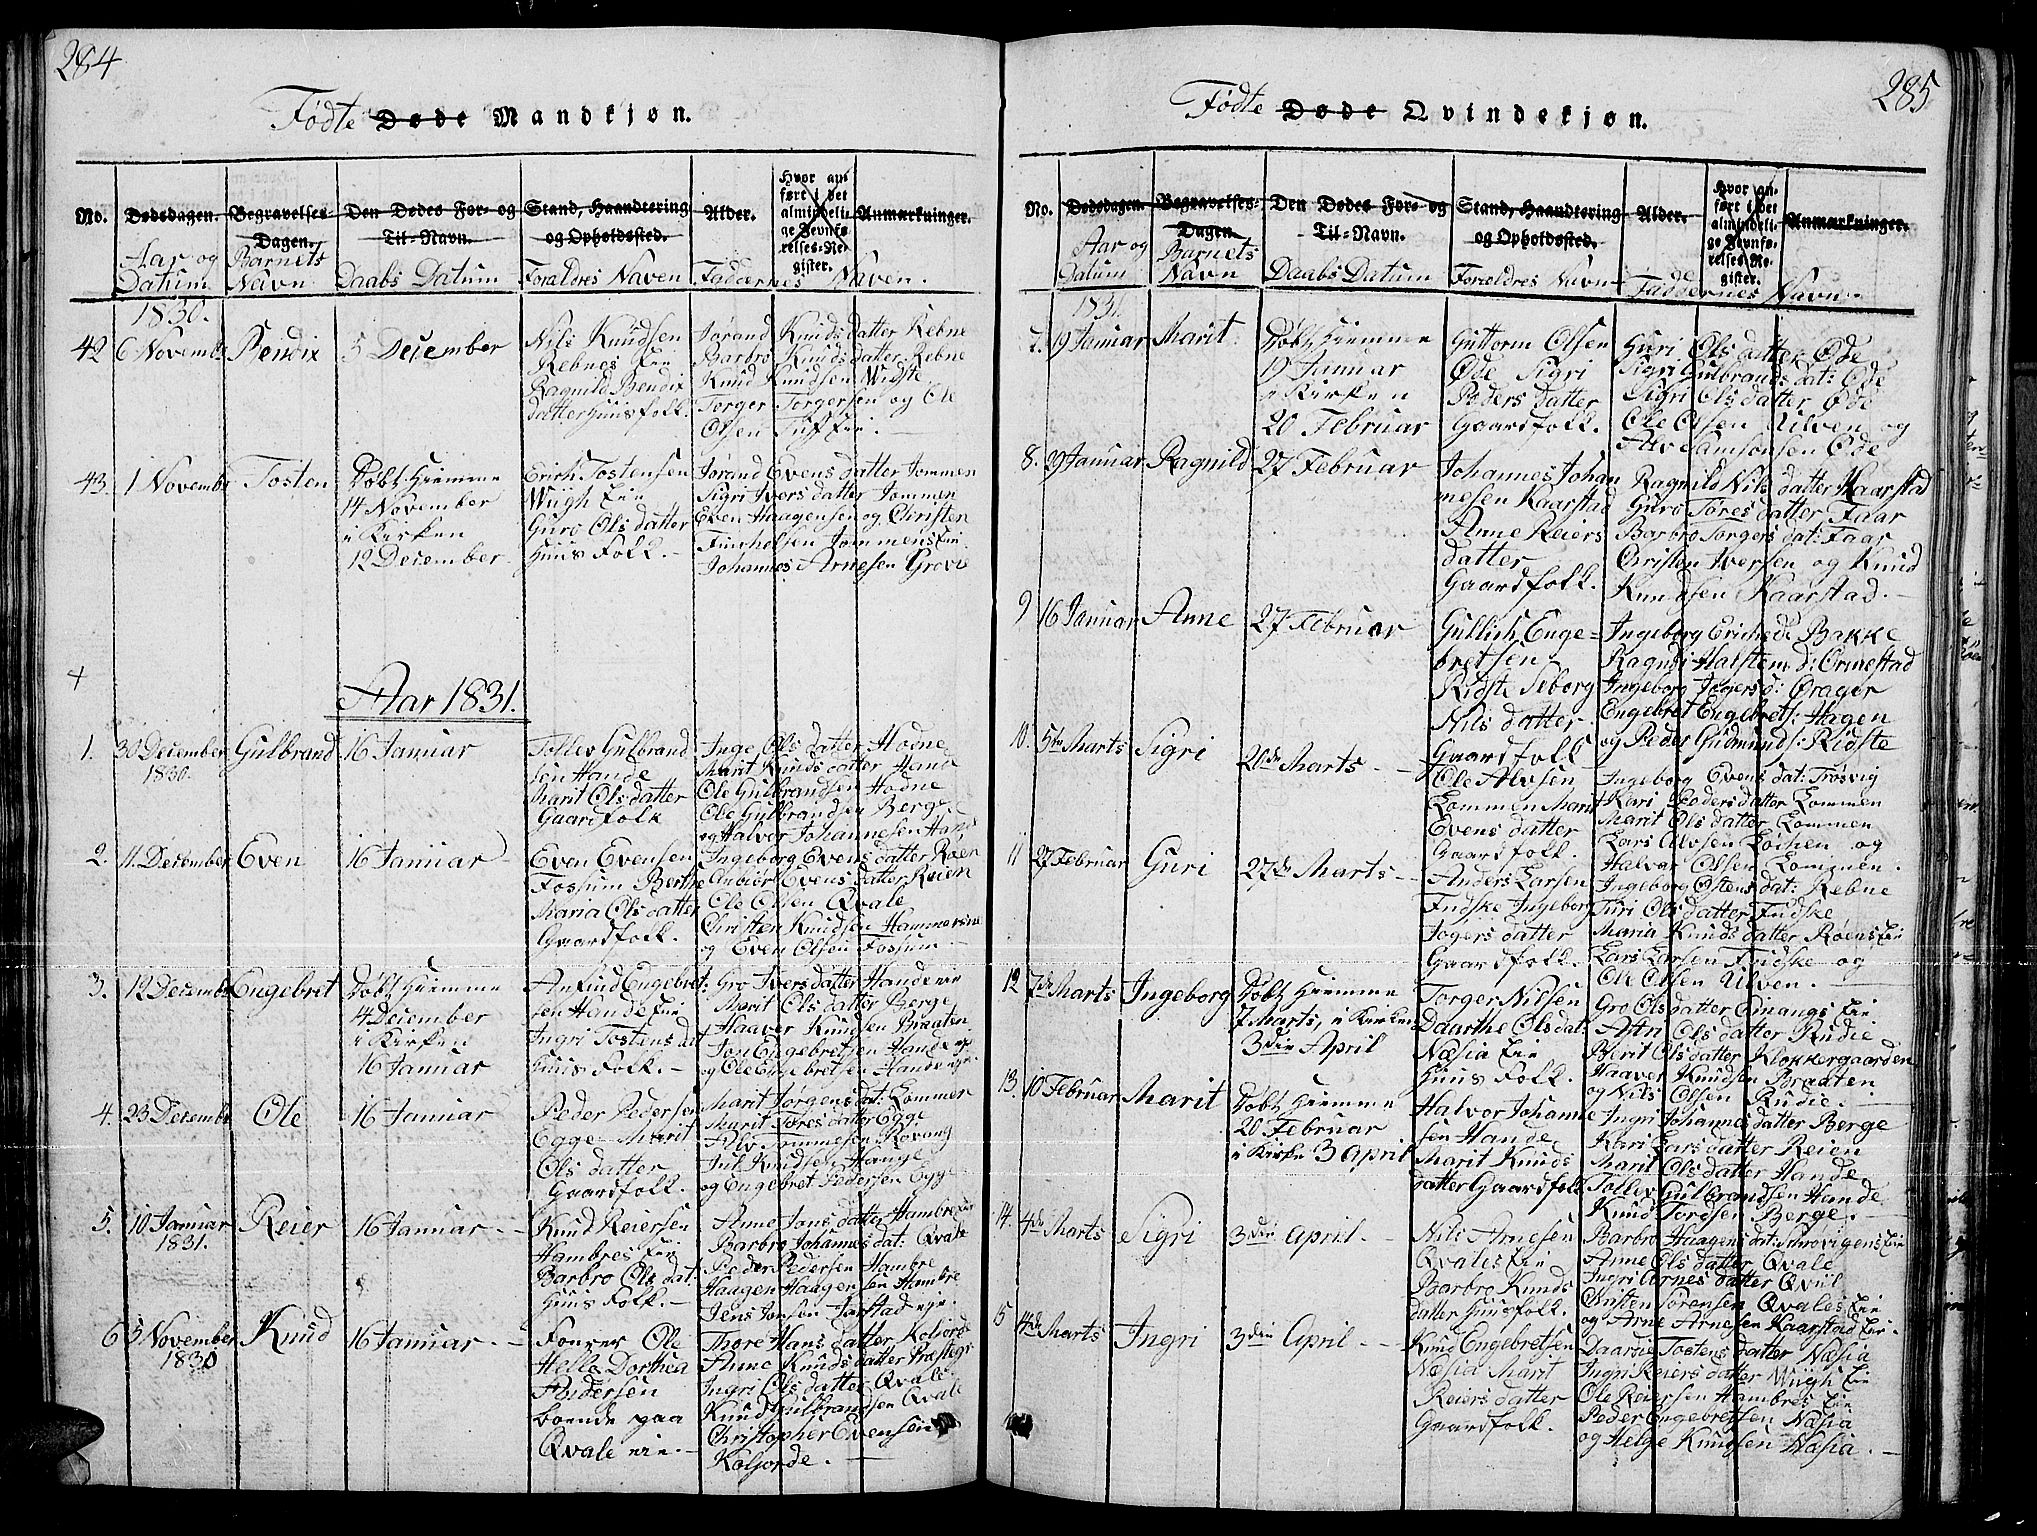 284
Fødte Døde Mandkjøn.
No. Dødsdagen. Begravelses-Dagen. Den Dødes For- og Til-Navn. Stand, Haandtering og Opholdssted. Alder. Hvor anført i det almindelige Jevnførelses-Register. Anmærkninger.
Aar og Datum Barnets Navn Daabs Datum Forældres Navn Faddernes Navn.
1830.
42 6 Novemb Bendix 5 December
Nils Knudsen
Rebnes Eie
Ragnild Bendix
datter Huusfolk.
Jorand Knudsdatter Rebne
Barbro Knudsdatter Rebne
Knud Knudsen Widste
Torger Torgersen og Ole
Olsen Tuff Eie.
43. 1 Novemb Tosten
Døbt Hiemme
14 November
i Kirken
12 December
Erich Tostensen
Wiigh Eie
Guro Olsdatter
Huus Folk.
Jorand Evensdatter Jommen
Sigri Iversdatter Jommen
Even Haagensen og Christen
Finchelsen Jommens Eie
Johannes Arnesen Grovi
Aar 1831.
1. 30 December 1830. Gulbrand 16 Januar
Tollev Gulbrand
sen Hande
Marit Olsdatter
Gaardfolk
Inge Olsdatter Hodne
Marit Knudsdatter Hande
Ole Gulbrandsen Hodne
Ole Gulbrandsen Berge
og Halvor Johannesen Hand
2. 11 December Even 16 Januar
Even Evensen
Fossum Berthe
Maria Olsdatter
Gaardfolk.
Ingeborg Evensdatter Røen
Anbiør Evensdatter Reien
Ole Olsen Qvale
Christen Knudsen Hammersne
og Even Olsen Fossum
3. 12 Decembe Engebret
Døbt Hiemme
14 December
i Kirken
16 Januar
Anfind Engebret:
sen Hande Eie
Ingri Tostensd
Huus Folk.
Gro Iversdatter Hande eie
Marit Olsdatter Berge
Haaver Knudsen Braaten
Jon Engebretsen Hande og
og Ole Engebretsen Hande eje
4. 23 Decembe Ole 16 Januar
Peder Pedersen
Egge Marit
Olsdatter
Gaardfolk.
Marit Jørgensdat: Lommen
Marit Toresdatter Egge
Alv Tommesen Rovang
Jul Knudsen Hange
og Engebret Pedersen Egge
5. 10 Januar 1831. Reier 16 Januar
Knud Reiersen
Hambres Eie
Barbro Olsdat:
Huus Folk.
Anne Jonsdatter Hambre Eie
Barbro Johannesdat: Qvale
Peder Pedersen Hambre
Haagen Haagensen Hambre
Jens Jonsen Aarstad eje.
6 3 November 1830 Knud 16 Januar
Ole
Helle Dorthea
Andersen
boende paa
Qvale eie.
Thore Hansdatter Koljord
Anne Knudsdatter Præstegr
Ingri Olsdatter Qvale
Knud Gulbrandsen Qvale
Christopher Evensen
Koljorde.
285
Fødte Døde Qvindekjøn.
No. Dødsdagen. Begravelses-Dagen. Den Dødes For- og Til-Navn. Stand, Haandtering og Opholdssted. Alder. Hvor anført i det almindelige Jevnførelses-Register. Anmærkninger.
Aar og Datum Barnets Navn Daabs Datum Forældres Navn Faddernes Navn.
1831.
7. 19 Januar Marit
Døbt Hiemme
19 Januar
i Kirken
20 Februar
Guttorm Olsen
Øde Sigri
Pedersdatter
Gaardfolk.
Guri Olsdatter Øde
Sigri Gulbrandsdat: Øde
Sigri Olsdatter Øde
Ole Olsen Ulven og
Alv Samsonsen Øde
8. 29 Januar Ragnild 27 Februar
Johannes Johan
nesen Kaarstad
Anne Reiers
datter
Gaardfolk.
Ragnild Nilsdatter Kaarstad
Guro Toresdatter Faar
Barbro Torgersdat: Faar
Christen Iversen og Knud
Knudsen Kaarstad.
9 16 Januar Anne 27 Februar
Gullich Enge=
bretsen
Ridste Siborg
Nilsdatter
Gaardfolk
Ingeborg Erichsd: Bakke
Ragndi Halstensd: Ormestad
Ingeborg Jogersd: Qrager
Engebret Engebrets: Hagen
og Peder Gudmunds: Ridste
10. 5te Marts Sigri 20de Marts
Ole Alvsen
Lommen Marit
Evensdatter
Gaardfolk.
Ingeborg Evensdat: Trøsvig
Kari Pedersdatter Lommen
Marit Olsdatter Lommen
Lars Alvsen Lochen og
Halvor Olsen Lommen.
11 27 Februar Guri 27de Marts
Anders Larsen
Fudske Ingeborg
Jogersdatter
Gaardfolk.
Ingeborg Ostensdat: Rebne
Turi Olsdatter Fudske
Maria Knudsdatter Røens Eie
Lars Larsen Fridske og
Ole Olsen Ulven.
12 7de Marts Ingeborg
Døbt Hiemme
7 Marts, i Kirken
3die April
Torger Nilsen
Daarthe Olsdat:
Næsia Eie
Huus Folk.
Gro Olsdatter Einangs Eie
Astri Olsdatter Rudie
Berit Olsdatter Klokkergaarden
Haaver Knudsen Braaten
og Nils Olsen Rudie.
13. 10 Februar Marit
Døbt Hiemme
20 Februar
i Kirke 3 April
Halvor Johanne
sen Hande
Marit Knuds
datter Gaardfolk
Ingri Johannesdatter Berge
Kari Larsdatter Reien
Marit Olsdatter Hande
Tollev Gulbrandsen Hande
Knud Tordsen Berge.
14. 4de Marts Sigri 3die April.
Nils Arnesen
Qvales Eie
Barbro Knuds
datter Huusfolk.
Barbro Haagensdat: Schrovigens Eie
Anne Olsdatter Qvale
Ingri Arnesdatter Qviil
Christen Sørensen Qvales Eie
og Arne Arnesen Kaarstad Eie.
15 4de Marts Ingri 3die April
Knud Engebretsen
Næsia Marit
Reiersdatter
Gaardfolk.
Daarde Tostensdatter Næsia
Ingri Reiersdatter Wiigh Eie
Ole Reiersen Hambres Eie
Peder Engebretsen Næsia
og Helge Knudsen Næsia.